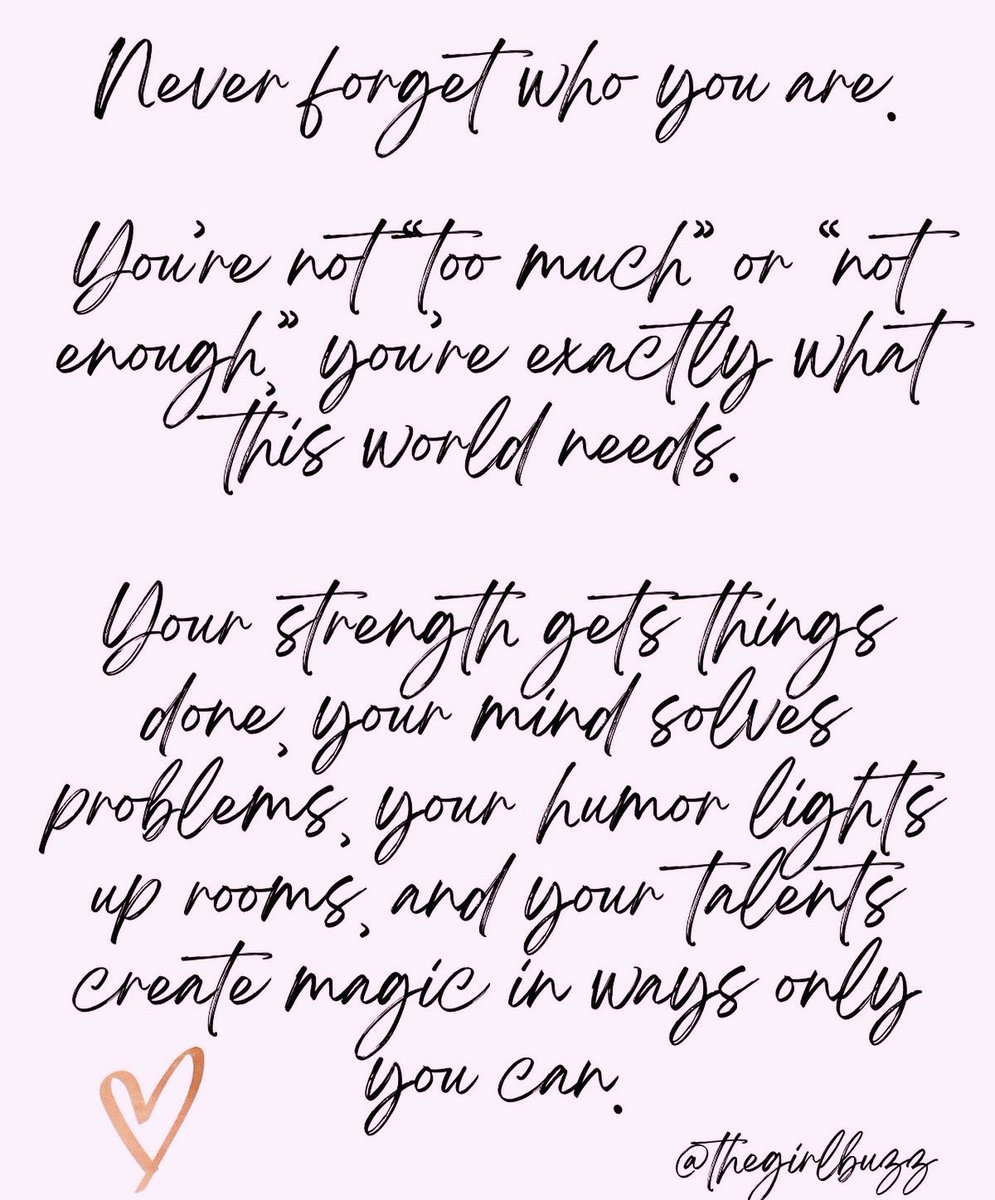 Never forget who you are.
You're not “too much” or “not
enough,” you're exactly what
this world needs.
Your strength gets things
done, your mind solves
problems, your humor lights
up rooms, and your talents
create magic in ways only
you can.
@thegirlbuzz